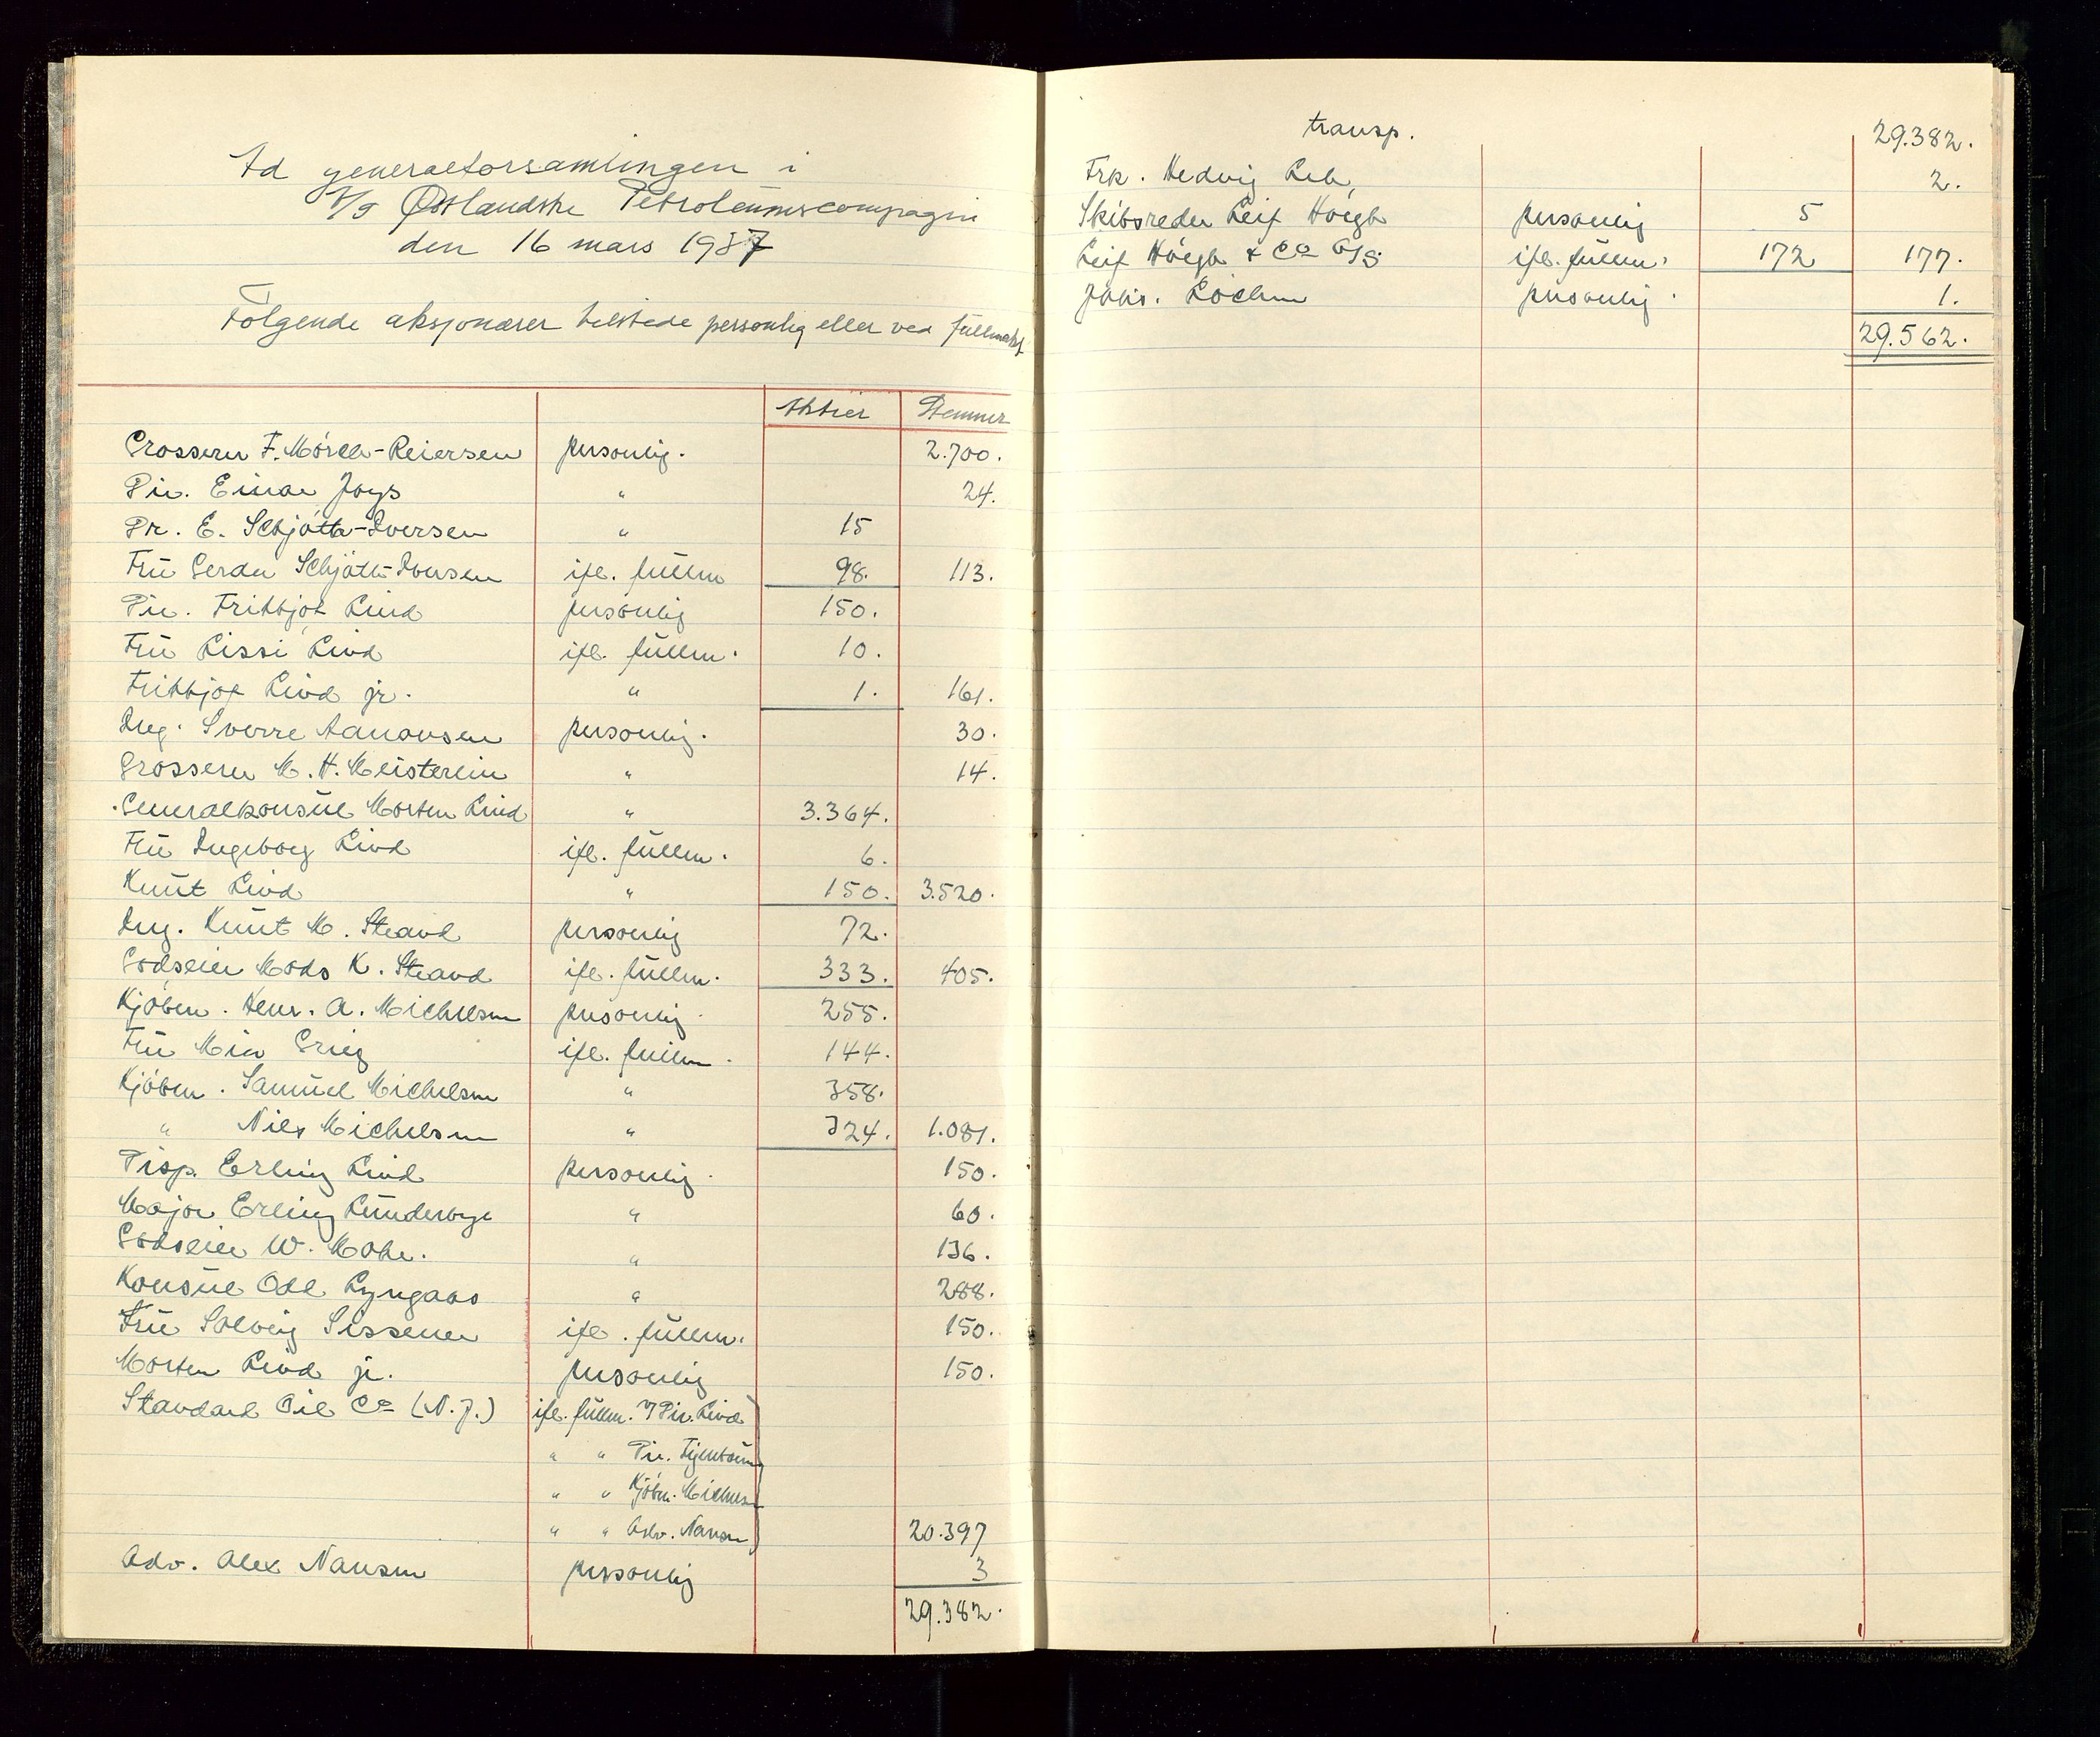 Ad generalforsamlingen i
A/S Østlandske Petroleumscompagni
den 16 mars 1937
Følgende aksjonærer tilstede personlig eller ved fullmakt
Aktier Stemmer
Grosserer F. Mörch-Reiersen personlig. 2.700.
Dir. Einar Joys " 24.
Dr. E. Schjøtt-Iversen " 15
Fru Gerda Schjøtt-Iversen ifl. fullm 98. 113.
Dir. Frithjof Lind personlig 150.
Fru Lissi Lind ifl. fullm. 10.
Frithjof Lind jr. " 1. 161.
Ing. Sverre Aanonsen personlig. 30.
Grosserer M. H. Meisterlin " 14.
Generalkonsul Morten Lind " 3.364.
Fru Ingeborg Lind ifl. fullm. 6.
Knut Lind " 150. 3.520.
Ing. Knut M. Strand personlig 72.
Godseier Mads K. Strand ifl. fullm. 333. 405.
Kjöbm. Henr. A. Michelsen personlig 255.
Fru Mia Grieg ifl. fullm. 144.
Kjöbm. Samuel Michelsen " 358.
" Nils Michelsen " 324. 1.081.
Disp. Erling Lind personlig 150.
Major Erling " 60.
Godseier W. Mohr. " 136.
Konsul Odd Lyngaas " 288.
Fru Solveig Sissener ifl. fullm. 150.
Morten Lind jr. personlig 150.
Standard Oil Co (N.J.) ifl. fullm. v/ Dir. Lind
" " Dir.
" " Kjöbm. Michelsen
" " Adv. Nansen 20.397
Adv. Alex Nansen personlig 3
29.382.
transp. 29.382.
Frk. Hedvig 2.
Skibsreder Leif Höegh personlig 5
Leif Höegh & Co A/S. ifl. fullm. 172 177.
Johs. Lochen personlig 1.
29.562.